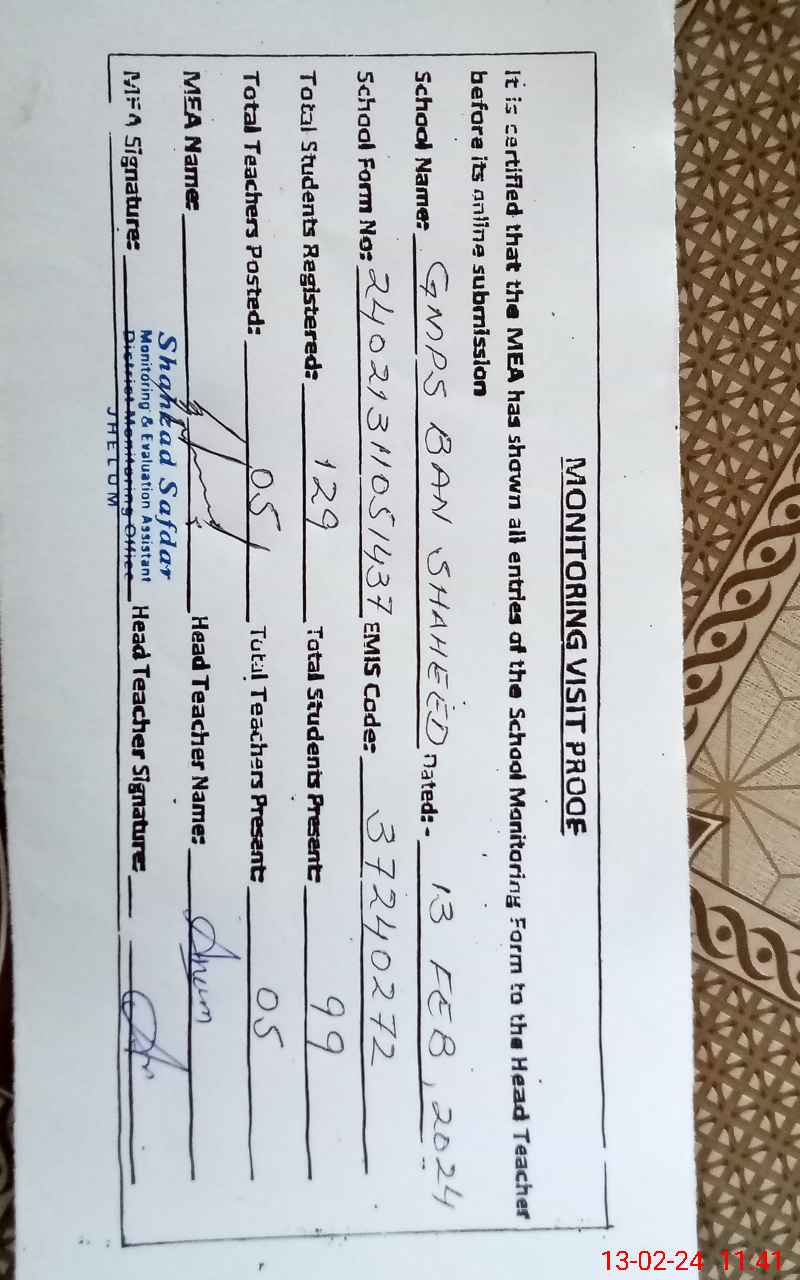 MONITORING VISIT PROOF
It is certified that the MEA has shown all entries of the School Monitoring Form to the Head Teacher
before its online submission
School Name: GMPS BAN SHAHEED Dated:- 13 FEB, 2024
School Form No: 24021311051437 EMIS Code: 37240272
Total Students Registered: 129 Total Students Present: 99
Total Teachers Posted: 05 Total Teachers Present: 05
MEA Name: Head Teacher Name: Anum
Shahzad Safdar
Monitoring & Evaluation Assistant
District Monitoring Office
JHELUM
MEA Signature: Head Teacher Signature:
13-02-24 11:41